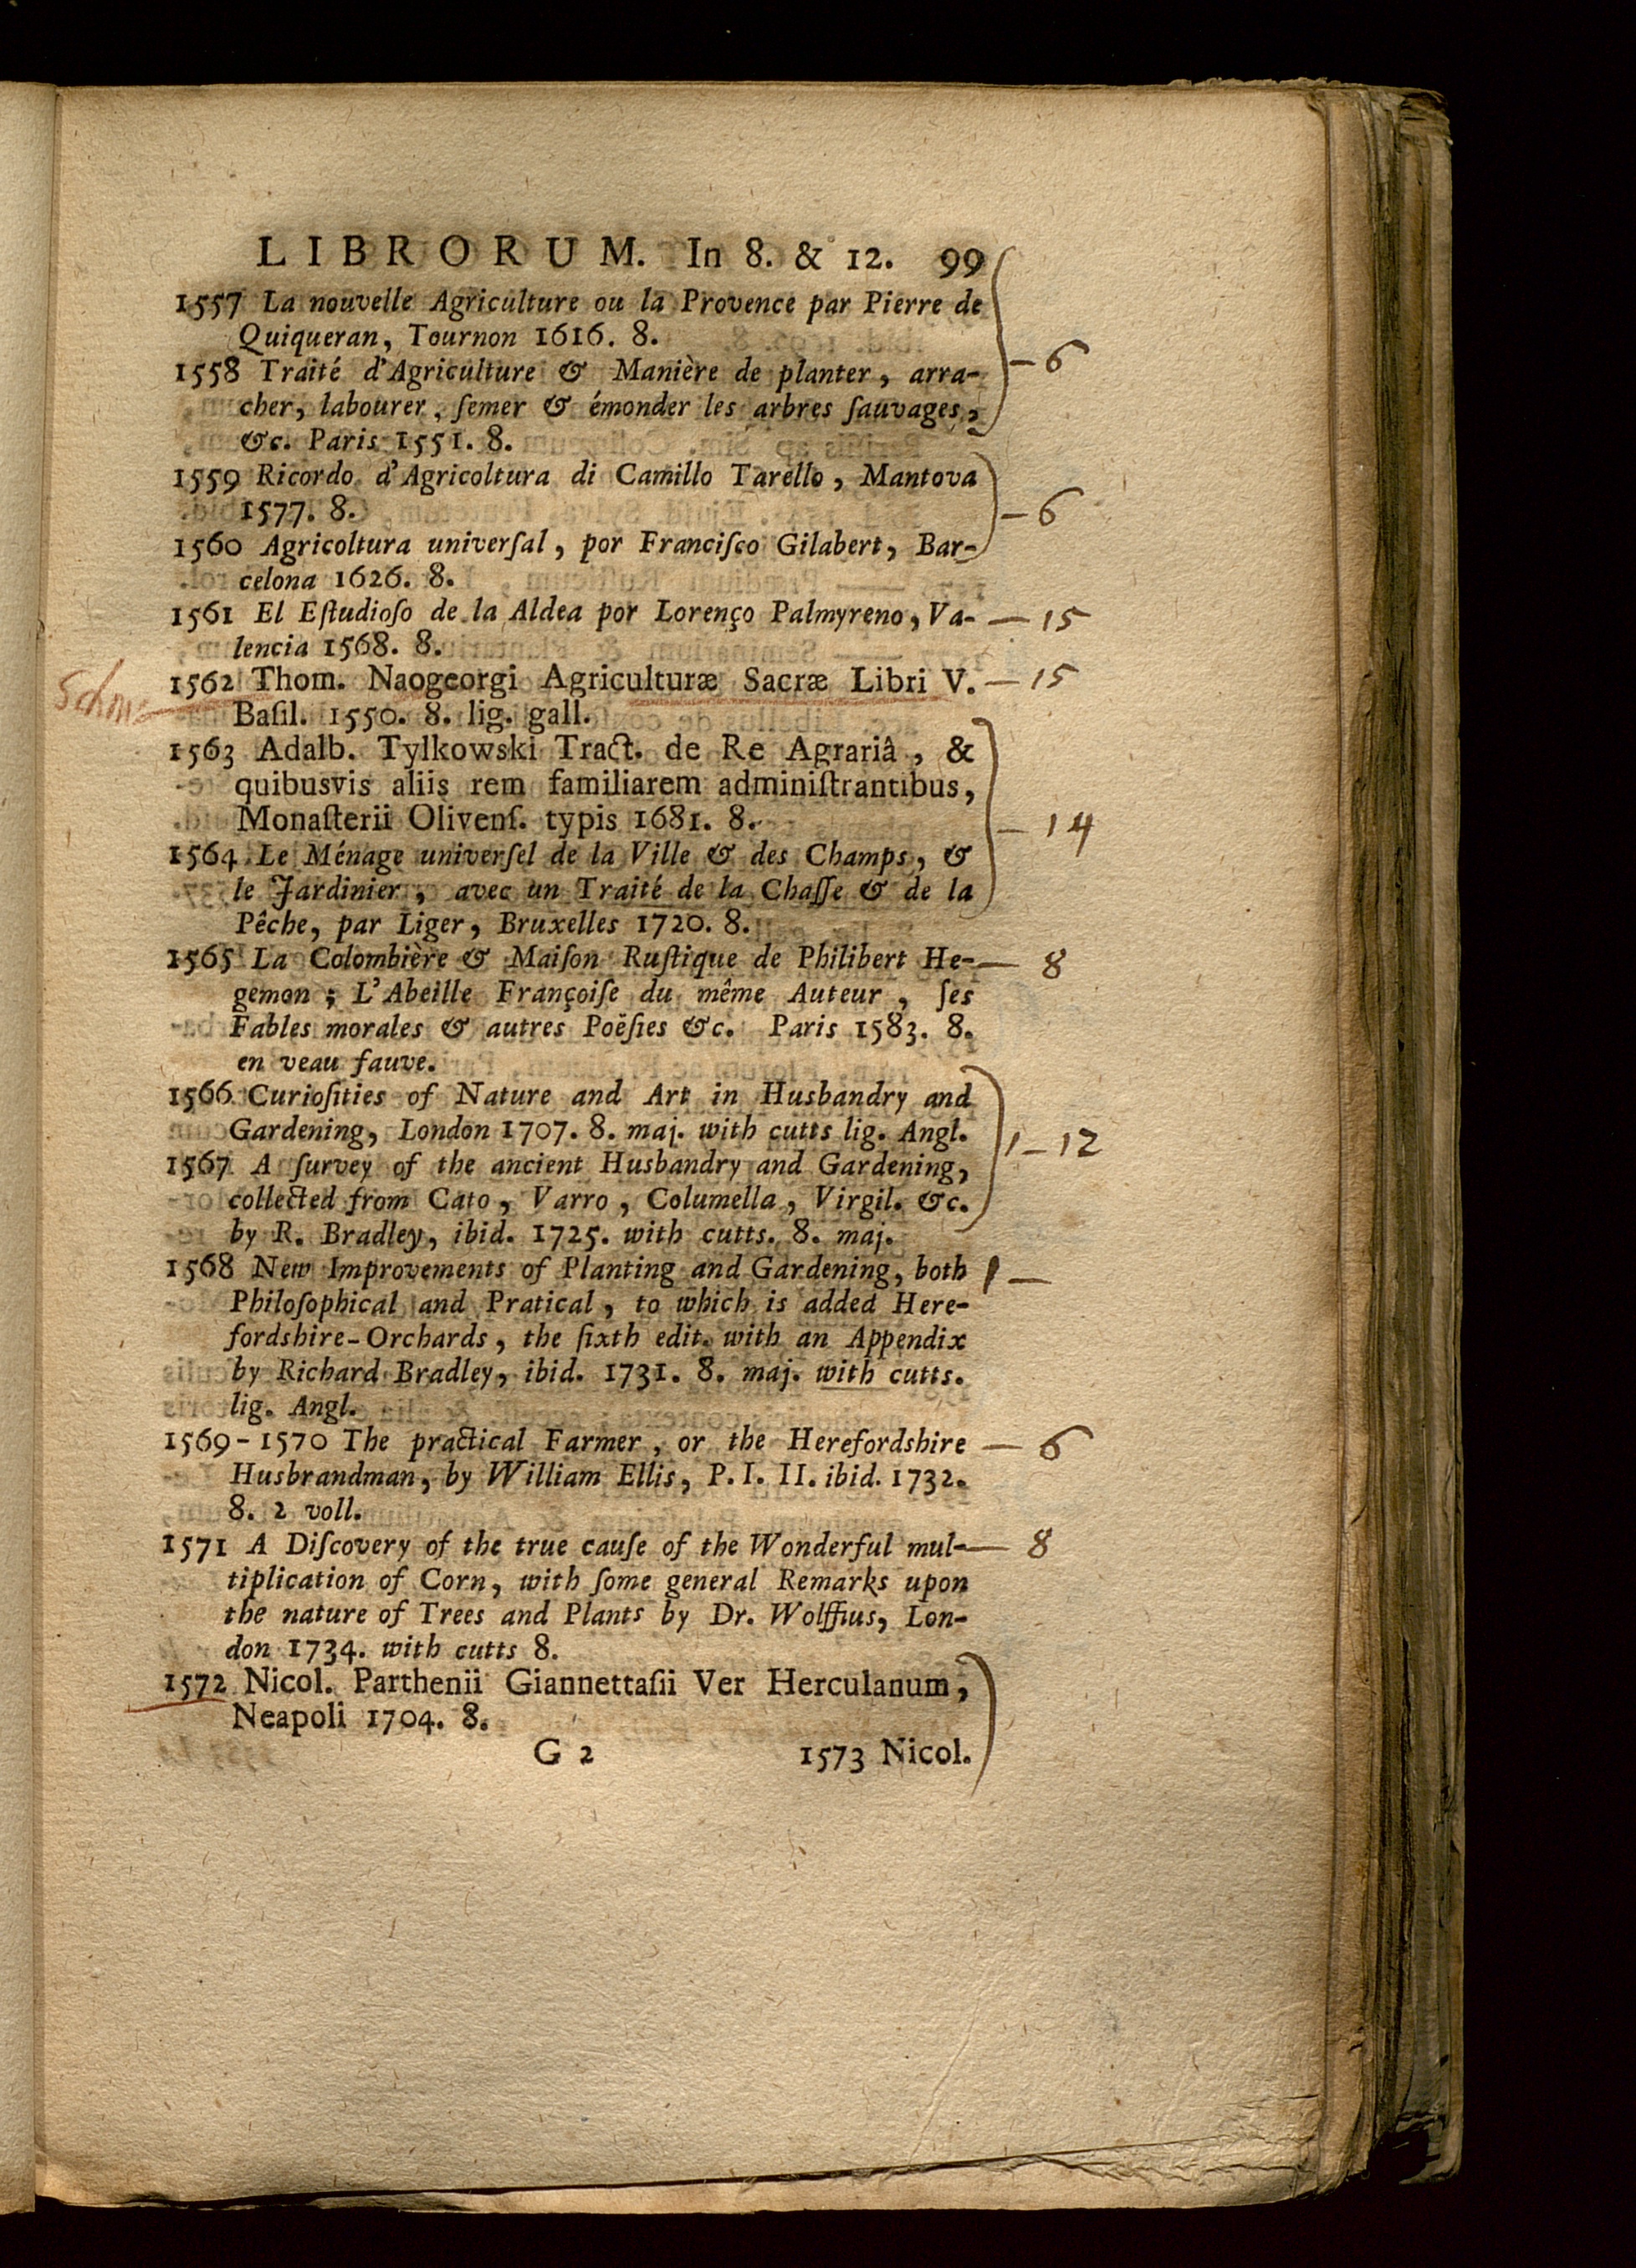 LIBRORUM. In 8. & 12. 99
1557 La nouvelle Agriculture ou la Provence par Pierre de
Quiqueran, Tournon 1616. 8.
1558 Traité d'Agriculture & Manière de planter, arra- — 6
cher, labourer, ſemer & émonder les arbres ſauvages,
&c. Paris 1551. 8.
1559 Ricordo d'Agricoltura di Camillo Tarello, Mantova
1577. 8. — 6
1560 Agricoltura univerſal, por Franciſco Gilabert, Bar-
celona 1626. 8.
1561 El Eſtudioſo de la Aldea por Lorenço Palmyreno, Va- — 15
lencia 1568. 8.
1562 Thom. Naogeorgi Agriculturæ Sacræ Libri V. — 15
Baſil. 1550. 8. lig. gall.
1563 Adalb. Tylkowski Tract. de Re Agrariâ, &
quibusvis aliis rem familiarem adminiſtrantibus,
Monaſterii Olivenſ. typis 1681. 8. — 14
1564 Le Ménage univerſel de la Ville & des Champs, &
le Jardinier, avec un Traité de la Chaſſe & de la
Pêche, par Liger, Bruxelles 1720. 8.
1565 La Colombière & Maiſon Ruſtique de Philibert He- — 8
gemon; L'Abeille Françoiſe du même Auteur, ſes
Fables morales & autres Poëſies &c. Paris 1583. 8.
en veau fauve.
1566 Curioſities of Nature and Art in Husbandry and
Gardening, London 1707. 8. maj. with cutts lig. Angl. 1 — 12
1567 A ſurvey of the ancient Husbandry and Gardening,
collected from Cato, Varro, Columella, Virgil. &c.
by R. Bradley, ibid. 1725. with cutts. 8. maj.
1568 New Improvements of Planting and Gardening, both 1 —
Philoſophical and Pratical, to which is added Here-
fordshire-Orchards, the ſixth edit. with an Appendix
by Richard Bradley, ibid. 1731. 8. maj. with cutts.
lig. Angl.
1569-1570 The practical Farmer, or the Herefordshire — 6
Husbrandman, by William Ellis, P. I. II. ibid. 1732.
8. 2 voll.
1571 A Diſcovery of the true cauſe of the Wonderful mul- — 8
tiplication of Corn, with ſome general Remarks upon
the nature of Trees and Plants by Dr. Wolffius, Lon-
don 1734. with cutts 8.
1572 Nicol. Parthenii Giannettaſii Ver Herculanum,
Neapoli 1704. 8.
G 2 1573 Nicol.